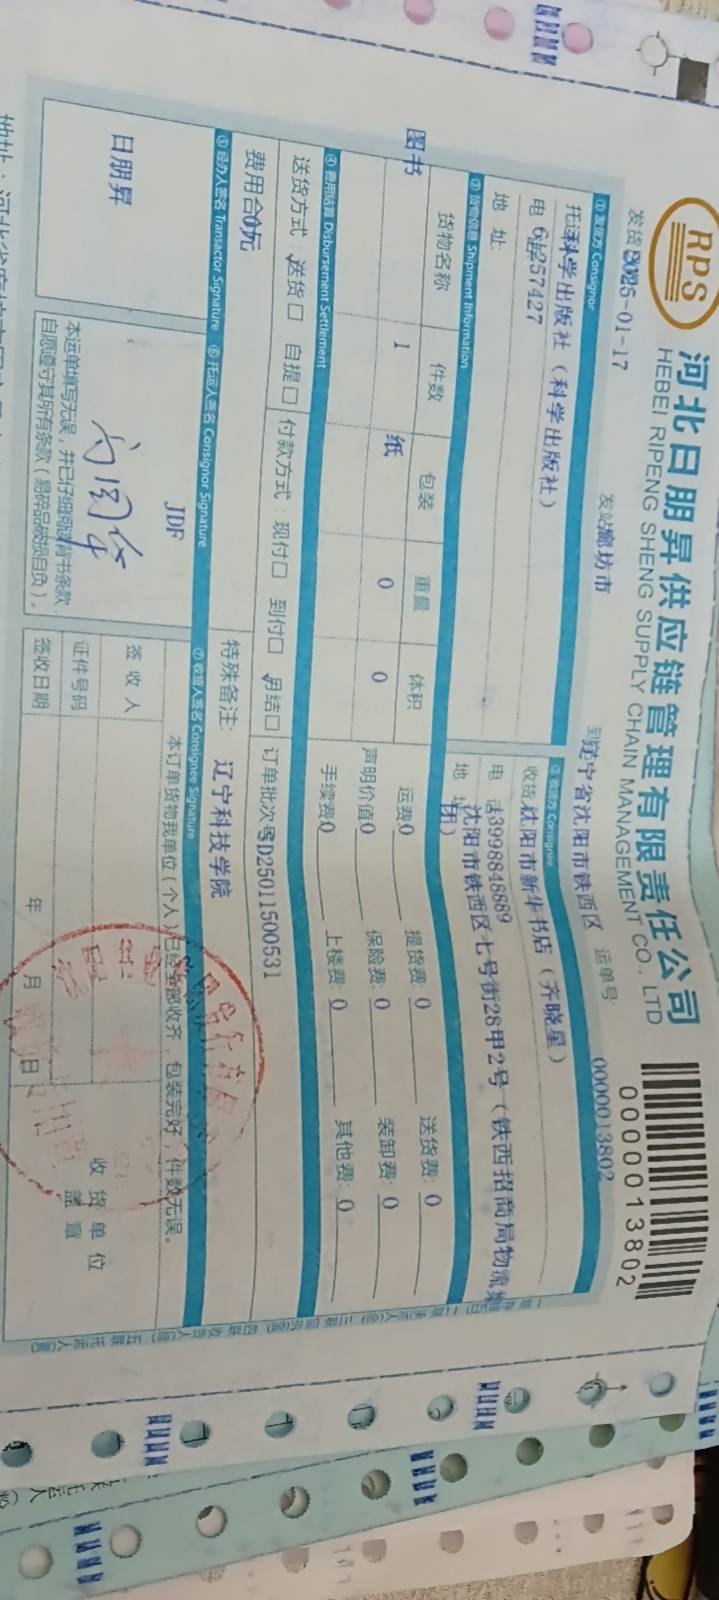 RPS
河北日朋昇供应链管理有限责任公司
HEBEI RIPENG SHENG SUPPLY CHAIN MANAGEMENT CO., LTD
0000013802
2025-01-17
发站廊坊市
辽宁省沈阳市铁西区
运单号:
0000013802
① 发货方 Consignor
科学出版社（科学出版社）
地 址:
② 收货方 Consignee
沈阳市新华书店（齐晓星）
沈阳市铁西区七号街28甲2号（铁西招商局物流集
团）
③ 货物信息 Shipment Information
货物名称 件数 包装 重量 体积
图书 1 纸 0 0
运费:0 提货费: 0 送货费: 0
声明价值:0 保险费: 0 装卸费: 0
手续费:0 上楼费: 0 其他费: 0
④ 费用结算 Disbursement Settlement
送货方式：送货□ 自提□ 付款方式：现付□ 到付□ 月结□ 订单批次号D25011500531
特殊备注: 辽宁科技学院
⑤ 经办人签名 Transactor Signature
日朋昇
⑥ 托运人签名 Consignor Signature
JDF
本运单填写无误，并已仔细阅读背书条款，
自愿遵守其所有条款（易碎品破损自负）。
⑦ 收货人签名 Consignee Signature
本订单货物我单位（个人）已经全部收齐，包装完好，件数无误。
签 收 人
证件号码
签收日期 年 月 日
收 货 单 位
盖 章